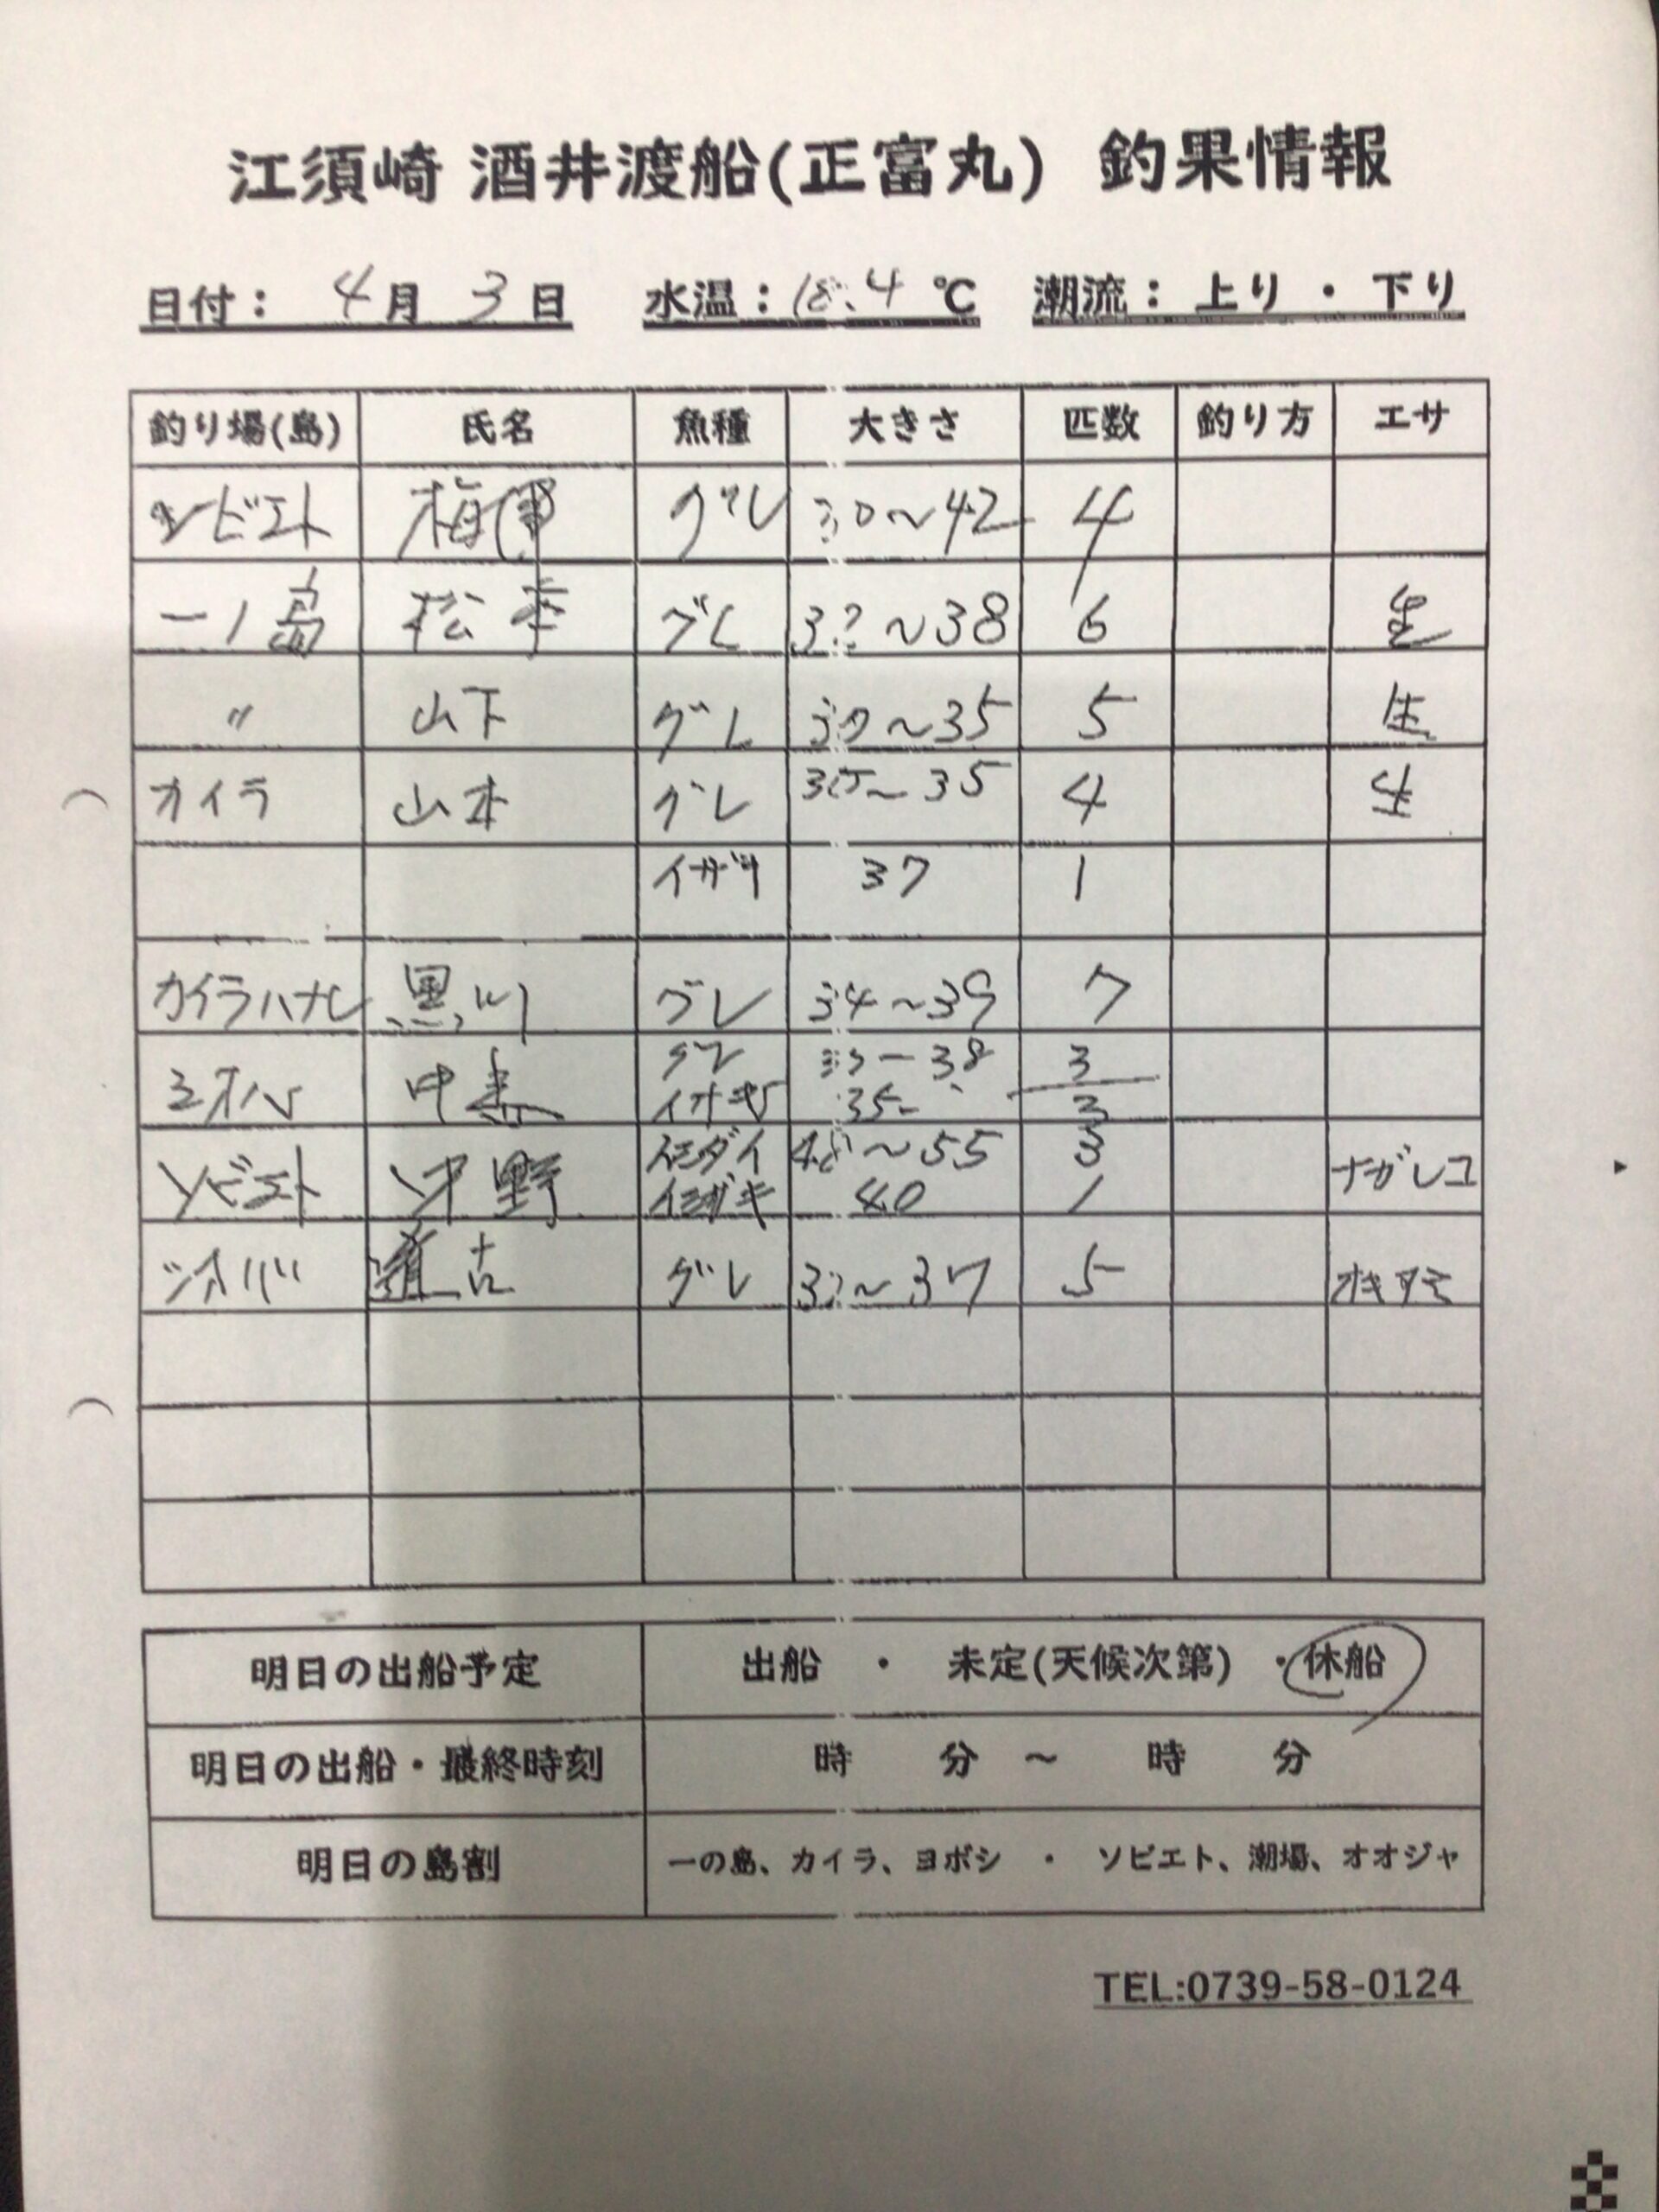 江須崎 酒井渡船(正富丸) 釣果情報
日付： 4月 3日 水温：18.4 ℃ 潮流： 上り ・ 下り
釣り場(島) 氏名 魚種 大きさ 匹数 釣り方 エサ
ソビエト グレ 30～42 4
一ノ島 松本 グレ 32～38 6 生
〃 山下 グレ 30～35 5 生
カイラ 山本 グレ 35 4 生
37 1
カイラハナレ 黒川 グレ 34～39 7
グレ 38 3
35 3
ソビエト 48～55 3 ナガレコ
イシガキ 40 1
グレ 32～37 5 オキアミ
明日の出船予定 出船 ・ 未定(天候次第) ・ 休船
明日の出船・最終時刻 時 分 ～ 時 分
明日の島割 一の島、カイラ、ヨボシ ・ ソビエト、潮場、オオジャ
TEL:0739-58-0124